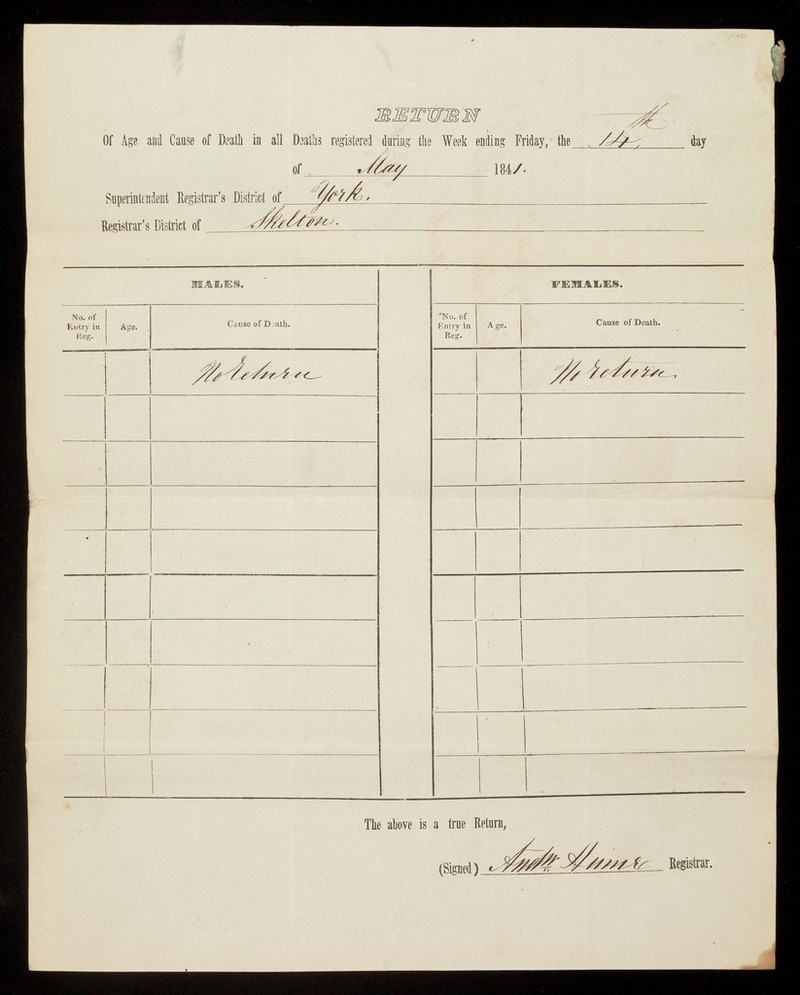 RETURN
Of Age and Cause of Death in all Deaths registered during the Week ending Friday, the 14th day
of May 1841.
Superintendent Registrar's District of York.
Registrar's District of Skelton.
MALES.
No. of Entry in Reg. Age. Cause of Death.
No return
FEMALES.
No. of Entry in Reg. Age. Cause of Death.
No return.
The above is a true Return,
(Signed) Andw. Hume Registrar.